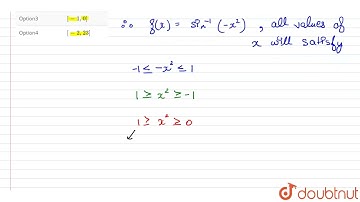 Option3 [−1, 0]
Option4 [−2, 23]
∴ f(x) = sin⁻¹ (−x²) , all values of
x will satisfy
-1 ≤ −x² ≤ 1
1 ≥ x² ≥ -1
1 ≥ x² ≥ 0
doubtnut